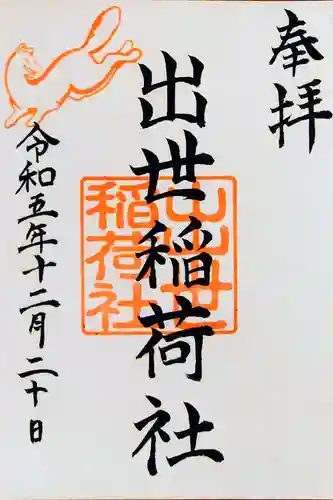 奉拝
出世稲荷社
出世
稲荷社
令和五年十二月二十日